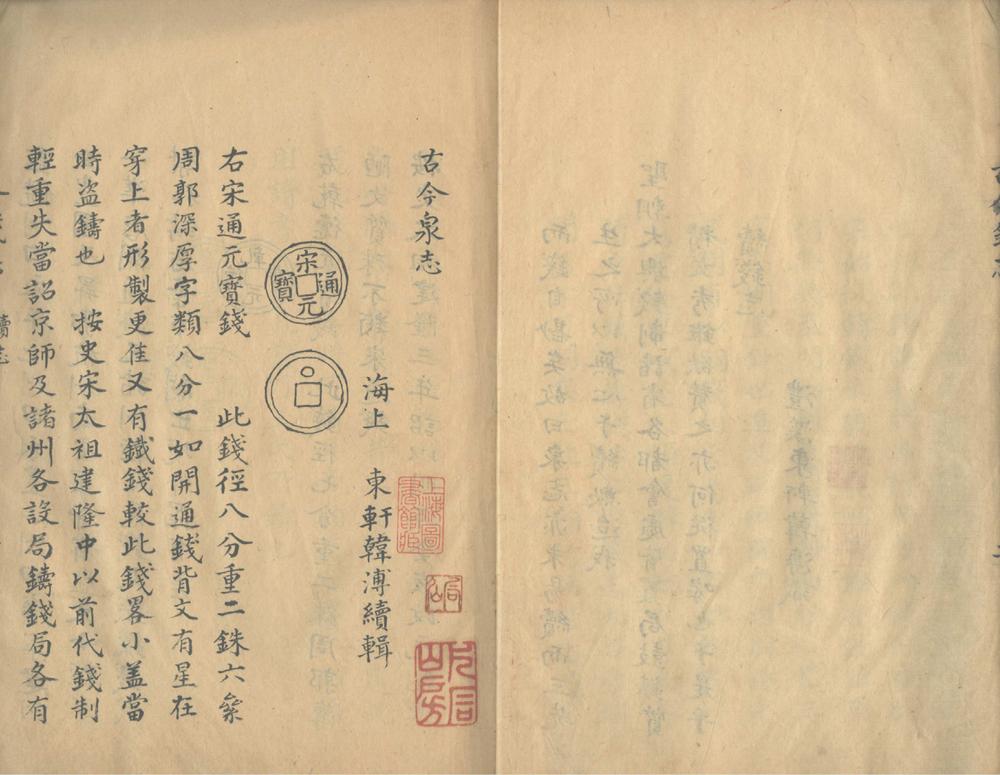 古今泉志
海上　東軒韓溥續輯
宋通元寶
右宋通元寶錢　此錢徑八分重二銖六絫
周郭深厚字類八分一如開通錢背文有星在
穿上者形製更佳又有鐵錢較此錢畧小盖當
時盗鑄也　按史宋太祖建隆中以前代錢制
輕重失當詔京師及諸州各設局鑄錢局各有
上海圖書館藏